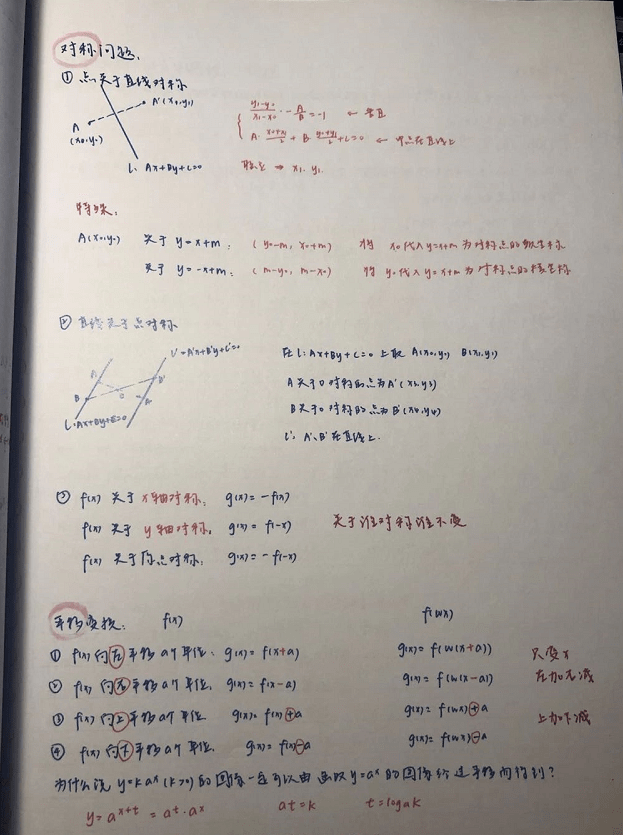 对称问题:
① 点关于直线对称
A'(x₁,y₁)
A
(x₀,y₀)
l: Ax+By+C=0
(y₁-y₀)/(x₁-x₀) · -A/B = -1 ← 垂直
A·(x₀+x₁)/2 + B·(y₀+y₁)/2 + C=0 ← 中点在直线上
联立 ⇒ x₁, y₁
特殊:
A(x₀,y₀) 关于 y=x+m: (y₀-m, x₀+m) 将 x₀代入y=x+m 为对称点的纵坐标
关于 y=-x+m: (m-y₀, m-x₀) 将 y₀代入y=x+m 为对称点的横坐标
② 直线关于点对称
l'=A'x+B'y+C'=0
A
B
O
B'
A'
l:Ax+By+C=0
在l: Ax+By+C=0 上取 A(x₀,y₀) B(x₁,y₁)
A关于O对称的点为A'(x₃,y₃)
B关于O对称的点为B'(x₄,y₄)
l': A'、B'在直线上.
③ f(x) 关于 x轴对称: g(x)= -f(x)
f(x) 关于 y轴对称: g(x)= f(-x) 关于谁对称谁不变
f(x) 关于原点对称: g(x)= -f(-x)
平移变换: f(x) f(wx)
① f(x) 向左平移a个单位: g(x)= f(x+a) g(x)= f(w(x+a)) 只变x
② f(x) 向右平移a个单位: g(x)= f(x-a) g(x)= f(w(x-a)) 左加右减
③ f(x) 向上平移a个单位 g(x)= f(x)+a g(x)= f(wx)+a 上加下减
④ f(x) 向下平移a个单位 g(x)= f(x)-a g(x)= f(wx)-a
为什么说 y=k aˣ (k>0) 的图像一定可以由函数 y=aˣ 的图像经过平移而得到?
y= aˣ⁺ᵗ = aᵗ·aˣ aᵗ=k t=logₐk